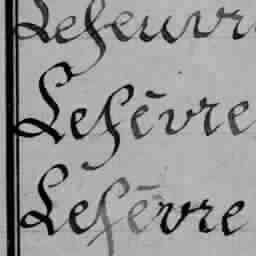 Lefeuvr
Lefèvre
Lefèvre